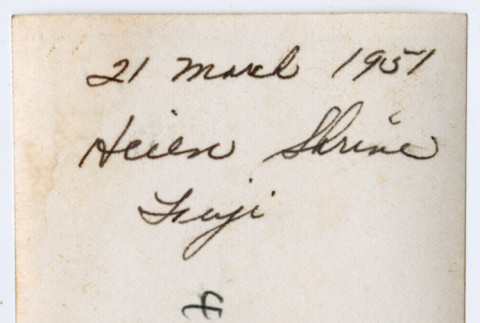 21 March 1951
Heien Shrine
Tsuji
4